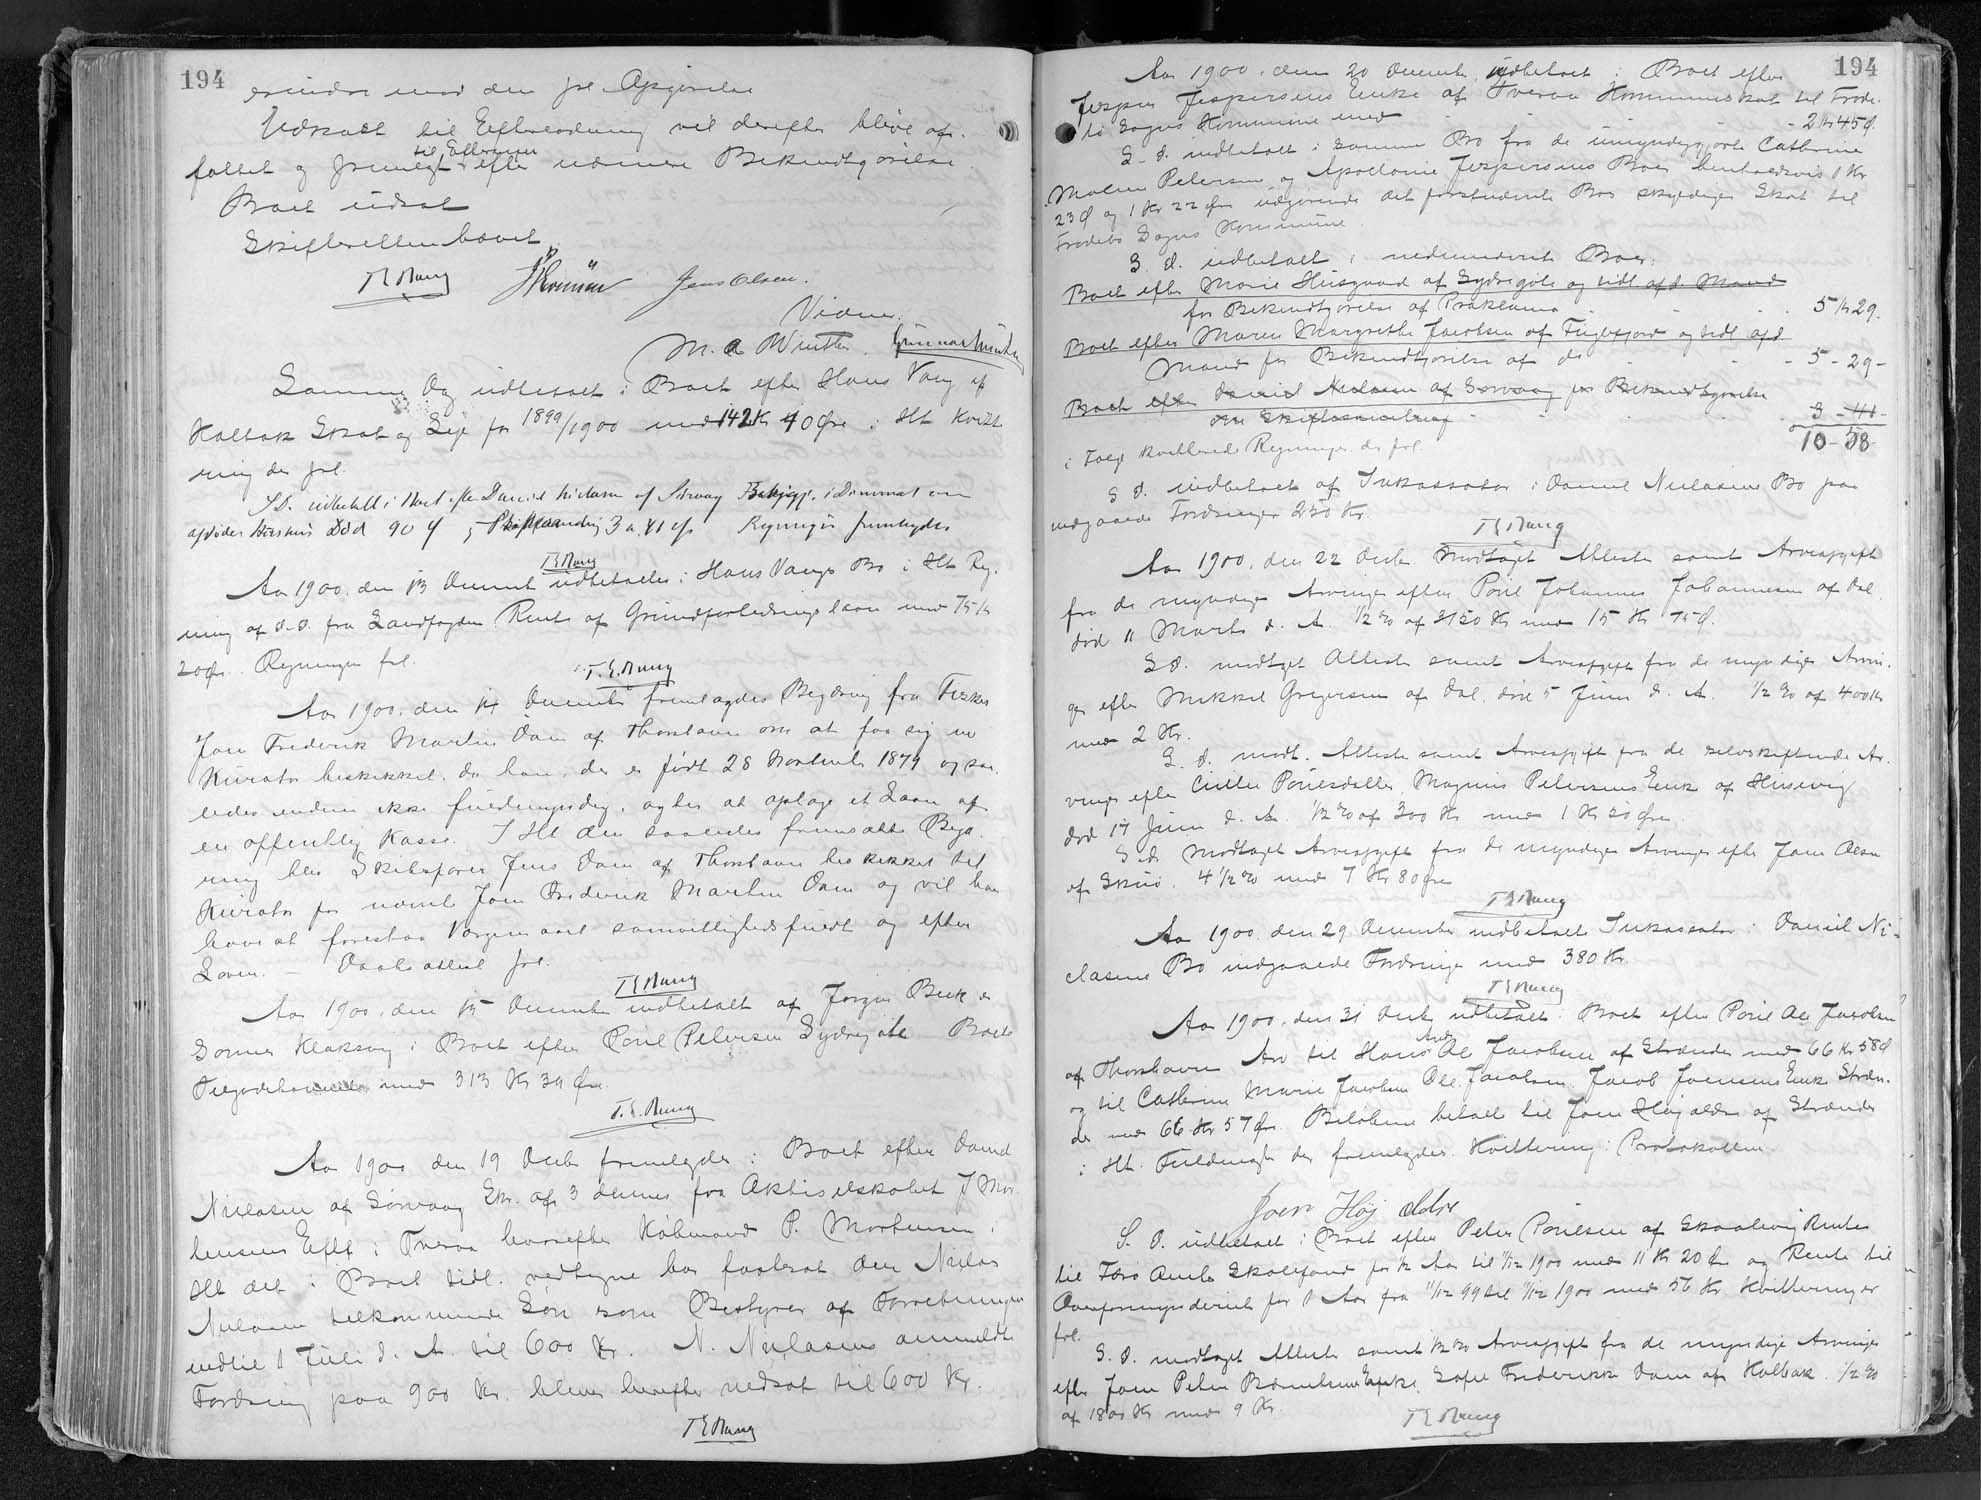 194
erindre mod den frl Opgjørelse
Udkast til Efterlodning vil derefter blive af-
fattet og fremlagt til Eftersyn efter nærmere Bekendtgørelse.
Boet udsat
Skifteretten hævet.
Jens Olsen.
Vidner:
M. A Winther.
Samme Dag udbetalt i Boet efter Hans Vang af
Kalbak Skat og Leje for 1899/1900 med 142 Kr 40 Øre i Ht Kvitte-
ring der frl.
S.D. udbetalt i Boet efter Daniel Niclasen af Sørvaag
90 Ø 3 a 41 Regninger fremlagdes
Aar 1900, den 13 December udbetaltes i Hans Vangs Bo i Ht Reg-
ning af D.D. fra Landfogden Rente af Grundforbedringslaan med 75 Kr
20 Øre. Regningen frl.
Aar 1900, den 14 December fremlagdes Begæring fra Fisker
Joen Frederik Martin Dam af Thorshavn om at faa sig en
Kurator beskikket, da han, der er født 28 November 1879 og saa-
ledes endnu ikke fuldmyndig, agter at optage et Laan af
en offentlig Kasse. I Ht den saaledes fremsatte Begæ-
ring blev Skibsfører Jens Dam af Thorshavn beskikket til
Kurator for nævnte Joen Frederik Martin Dam og vil han
have at forestaa Værgemaal samvittighedsfuldt og efter
Loven. — Daabsattest frl.
Aar 1900, den 15 December indbetalt af Jørgen Bech &
Sønner Klaksvig i Boet efter Poul Petersen Sydregøte Boets
Tilgodehavende med 313 Kr 39 Øre.
Aar 1900 den 19 Decbr fremlagdes i Boet efter Daniel
Niclasen af Sørvaag Skr. af 3 dennes fra Aktieselskabet J Mor-
tensens Eftf. i Tveraa hvorefter Købmand P. Mortensen i
Ht det i Boet tidl. vedtagne har fastsat den Niclas
Niclasen tilkommende Løn som Bestyrer af Forretningen
indtil 1 Juli d. A. til 600 Kr. N. Niclasens anmeldte
Fordring paa 900 Kr. bliver herefter nedsat til 600 Kr.
194
Aar 1900, den 20 December, udbetalt i Boet efter
Jesper Jespersens Enke af Tveraa Kommuneskat til Frode-
bø Sogns Kommune med - 2 Kr 45 Ø.
S. D. udbetalt i samme Bo fra de umyndiggjorte Cathrine
Malene Petersen og Apolonie Jespersens Boer henholdsvis 1 Kr
23 Ø og 1 Kr 22 Øre udgørende det forstnævnte Bos skyldige Skat til
Frodebø Sogns Kommune.
S. D. udbetalt i nedennævnte Boer:
Boet efter Marie Husgaard af Sydregøte og tidl. afd. Mand
for Bekendtgørelse af Proklama 5 Kr 29.
Boet efter Maren Margrethe Jacobsen af Fuglefjord og tidl afd.
Mand for Bekendtgørelse af do - 5 - 29 -
Boet efter Daniel Niclasen af Sørvaag for Bekendtgørelse
om Skiftesamling 3 - 41 -
10 - 58
i Følge kvitterede Regninger der frl.
S. D. indbetalt af Inkassator i Daniel Niclasens Bo paa
indgaaede Fordringer 250 Kr.
Aar 1900, den 22 Decbr. modtaget Attester samt Arveafgift
fra de myndige Arvinger efter Poul Johannes Johannesen af Dal,
død 11 Marts d. A. 1/2 % af 3150 Kr med 15 Kr 75 Ø.
S. D. modtaget Attester samt Arveafgift fra de myndige Arvin-
ger efter Mikkel Gregersen af Dal, død 5 Juni d. A. 1/2 % af 400 Kr
med 2 Kr.
S. d. modt. Attester samt Arveafgift fra de selvskiftende Ar-
vinger efter Cicilie Poulsdatter, Magnus Petersens Enke af Husevig
død 17 Juni d. A. 1/2 % af 300 Kr med 1 Kr 50 Øre.
S. D. Modtaget Arveafgift fra de myndige Arvinger efter Joen Olsen
af Skuø. 4 1/2 % med 7 Kr 80 Øre
Aar 1900, den 29 December indbetalte Inkassator i Daniel Ni-
clasens Bo indgaaede Fordringer med 380 Kr.
Aar 1900, den 31 Decbr udbetalt i Boet efter Poul Ole Jacobsen
af Thorshavn Arv til Hans Ole Jacobsen af Strænder med 66 Kr 58 Ø
og til Cathrine Marie Jacobsen Ole Jacobsen Jacob Joensens Enke Stræn-
der med 66 Kr 57 Øre. Beløbene betalt til Joen Høj ældre af Strænder
i Ht. Fuldmagt der fremlagdes. Kvittering i Protokollen.
Joen Høj ældre
S. D. udbetalt i Boet efter Peter Poulsen af Skaalevig Rente
til Færø Amts Skolefond for 1/2 Aar til 11/12 1900 med 11 Kr 20 Øre og Rente til
Overformynderiet for 1 Aar fra 11/12 99 til 11/12 1900 med 56 Kr. Kvitteringer
frl.
S. D. modtaget Attester samt 1/2 % Arveafgift fra de myndige Arvinger
efter Joen Peter Enke, Sofie Frederikke Dam af Kalbak 1/2 %
af 1800 Kr med 9 Kr.